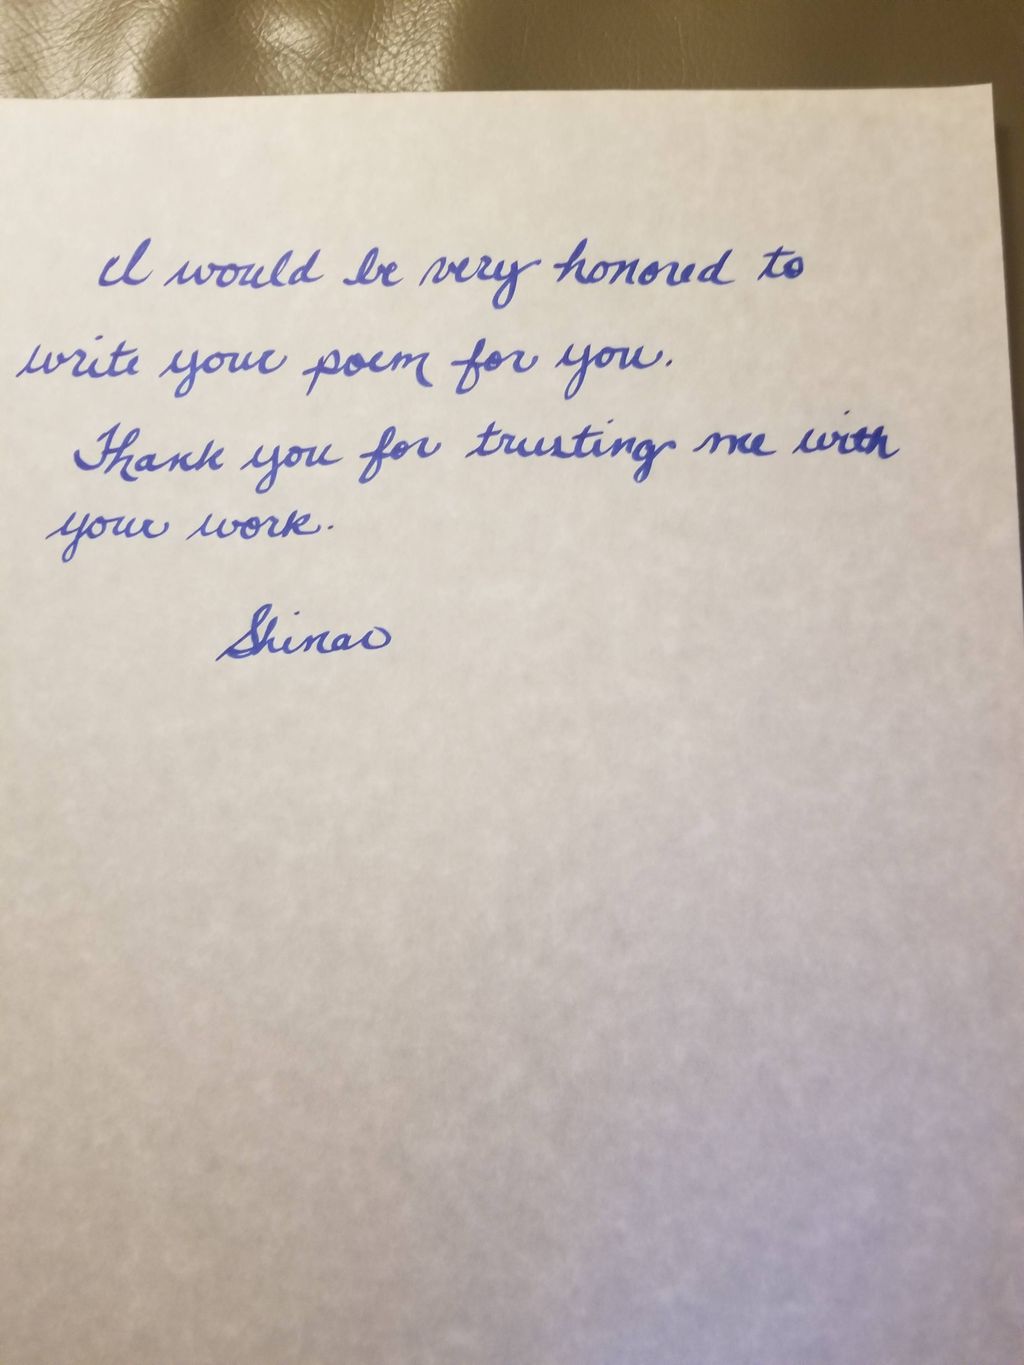 I would be very honored to
write your poem for you.
Thank you for trusting me with
your work.